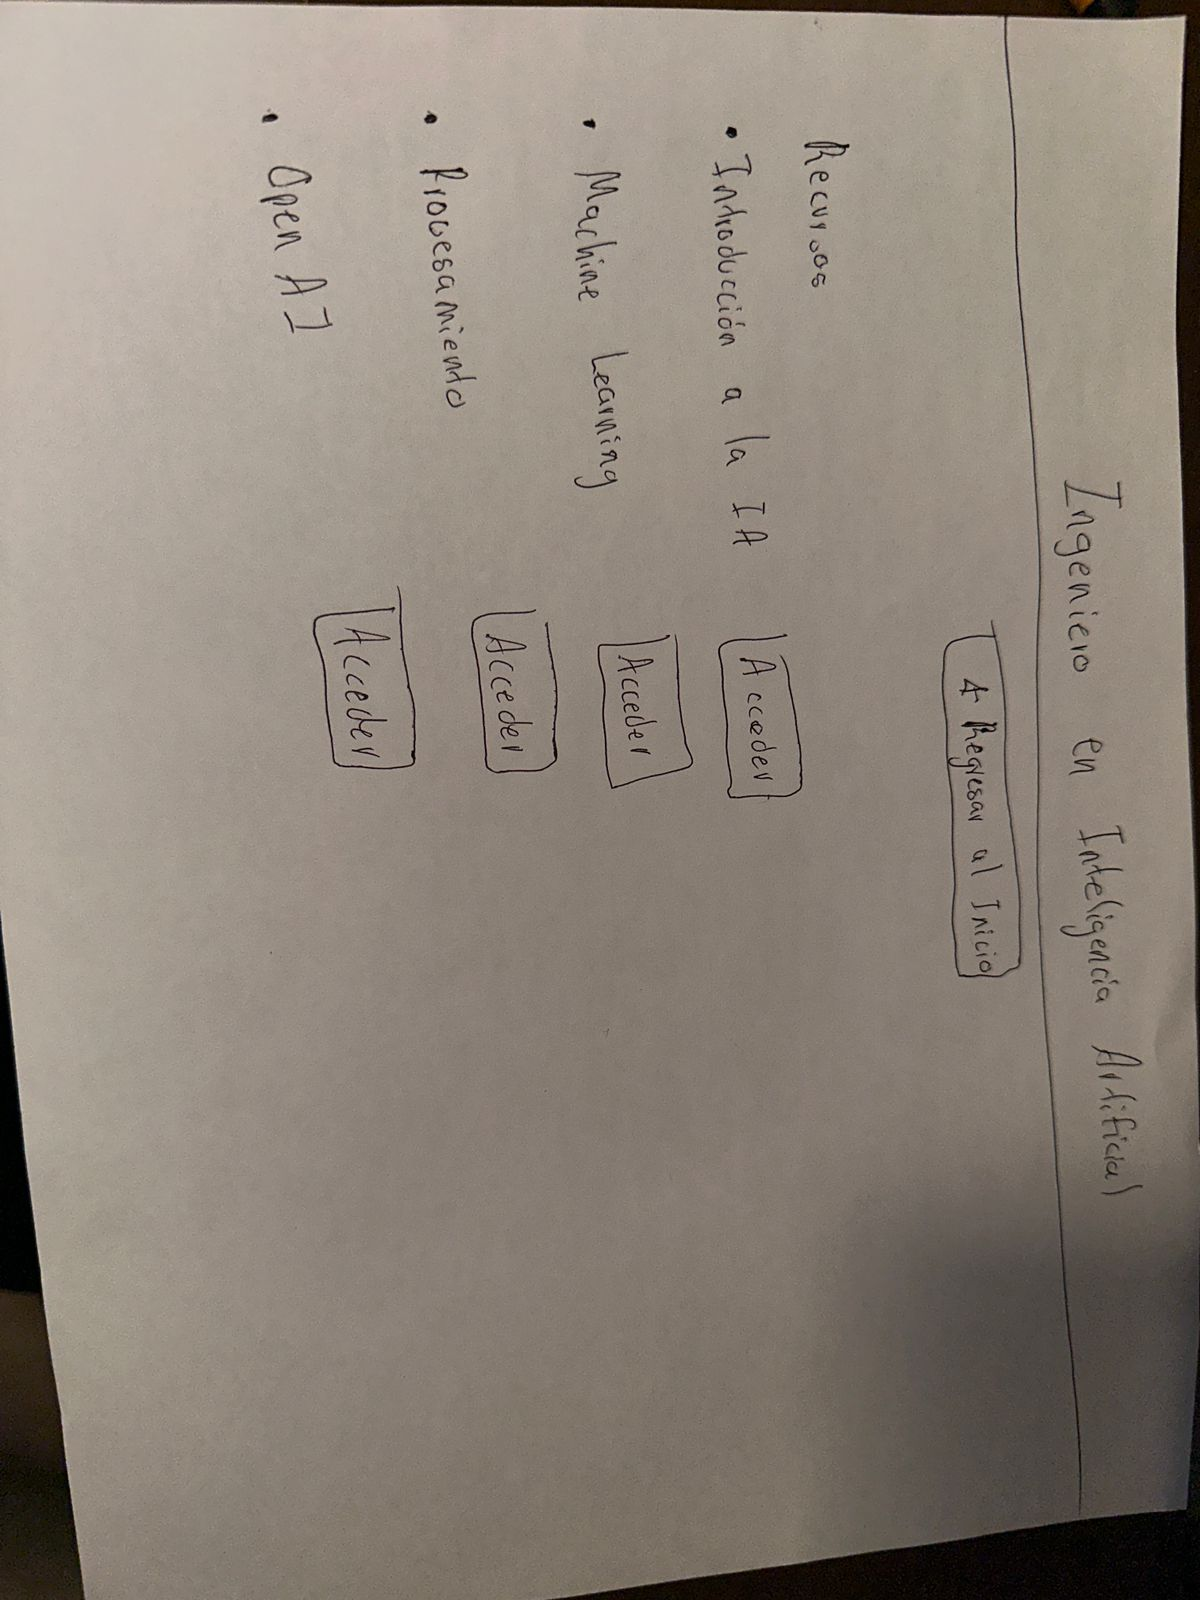 Ingeniero en Inteligencia Artificial
← Regresar al Inicio
Recursos
• Introducción a la IA Acceder
• Machine Learning Acceder
• Procesamiento Acceder
• Open AI Acceder